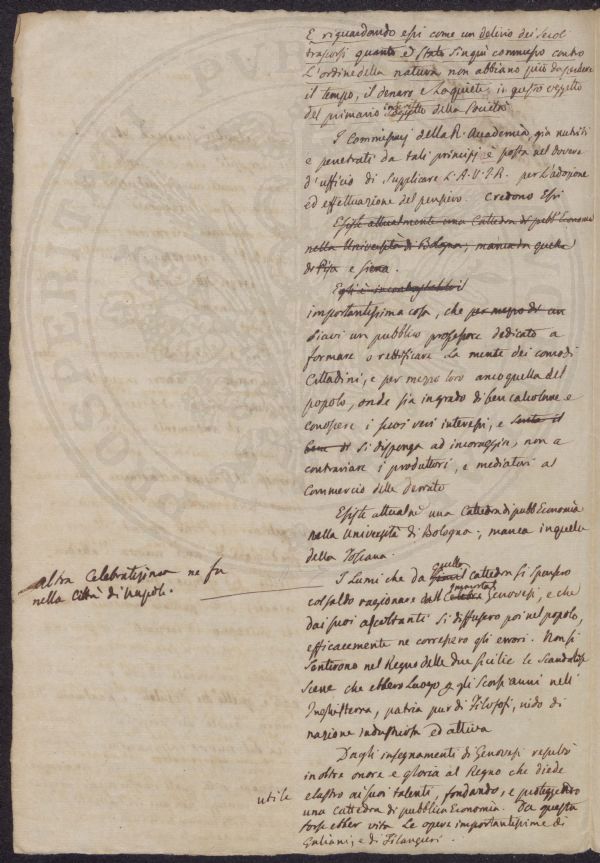 E riguardando essi come un delirio dei secoli
trascorsi quanto è stato sinqui commesso contro
L'ordine della natura non abbiano più da perdere
il tempo, il denaro e la quiete in questo oggetto
del primario interesse della Società
I Commissarj della R. Accademia, già nutriti
e penetrati da tali principj è posta nel dovere
d'ufficio di supplicare L'A.V.I.R. per L'adozione
ed effettuazione del pensiero. Credono Essi
Esiste attualmente una Cattedra di pubb. Economia
nella Università di Bologna, manca in quelle
di Pisa e Siena.
Egli è incontrastabil
importantissima cosa, che per mezzo di un
siavi un pubblico professore dedicato a
formare o rettificare la mente dei comodi
Cittadini, e per mezzo loro anco quella del
popolo, onde sia in grado di ben calcolare e
conoscere i suoi veri interessi, e
bene di si disponga ad incoraggire, non a
contrariare i produttori, e mediatori al
Commercio delle derrate
Esiste attualmᵉ una Cattedra di pubb. Economia
nella Università di Bologna, manca in quelle
della Toscana.
altra Celebratissima ne fu
nella città di Napoli.
I Lumi che da quella cattedra si sparsero
col saldo ragionare dell' immortal Genovesi, e che
dai suoi ascoltanti si diffusero poi nel popolo,
efficacemente ne corressero gli errori. Non si
sentirono nel Regno delle due Sicilie le scandalose
scene che ebbero Luogo gli scorsi anni nell'
Inghilterra, patria pur di Filosofi, nido di
nazione industriosa ed attiva
Dagli insegnamenti di Genovesi resultò
inoltre onore e gloria al Regno che diede
utile
ai suoi talenti, fondando, e proteggendo
una cattedra di pubblica Economia. Da questa
forse ebber vita Le opere importantissime di
Galiani, e di Filangieri.